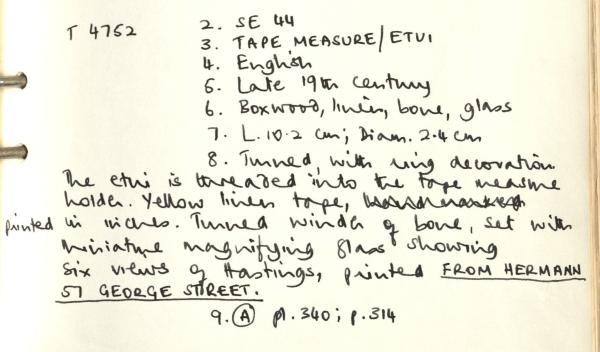 T 4752 2. SE 44
3. TAPE MEASURE/ETUI
4. English
5. Late 19th century
6. Boxwood, linen, bone, glass
7. L. 10.2 cm; Diam. 2.4 cm
8. Turned, with ring decoration.
The etui is threaded into the tape measure
holder. Yellow linen tape,
printed in inches. Turned winder of bone, set with
miniature magnifying glass showing
six views of Hastings, printed FROM HERMANN
57 GEORGE STREET.
9. A pl. 340; p. 314